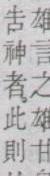 雄言之雄甘
古神者此則